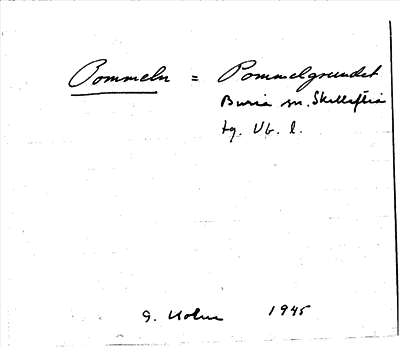 Pommeln = Pommelgrundet
Buriä sn. Skellefteå
tg. Vb. l.
G. Holm 1945